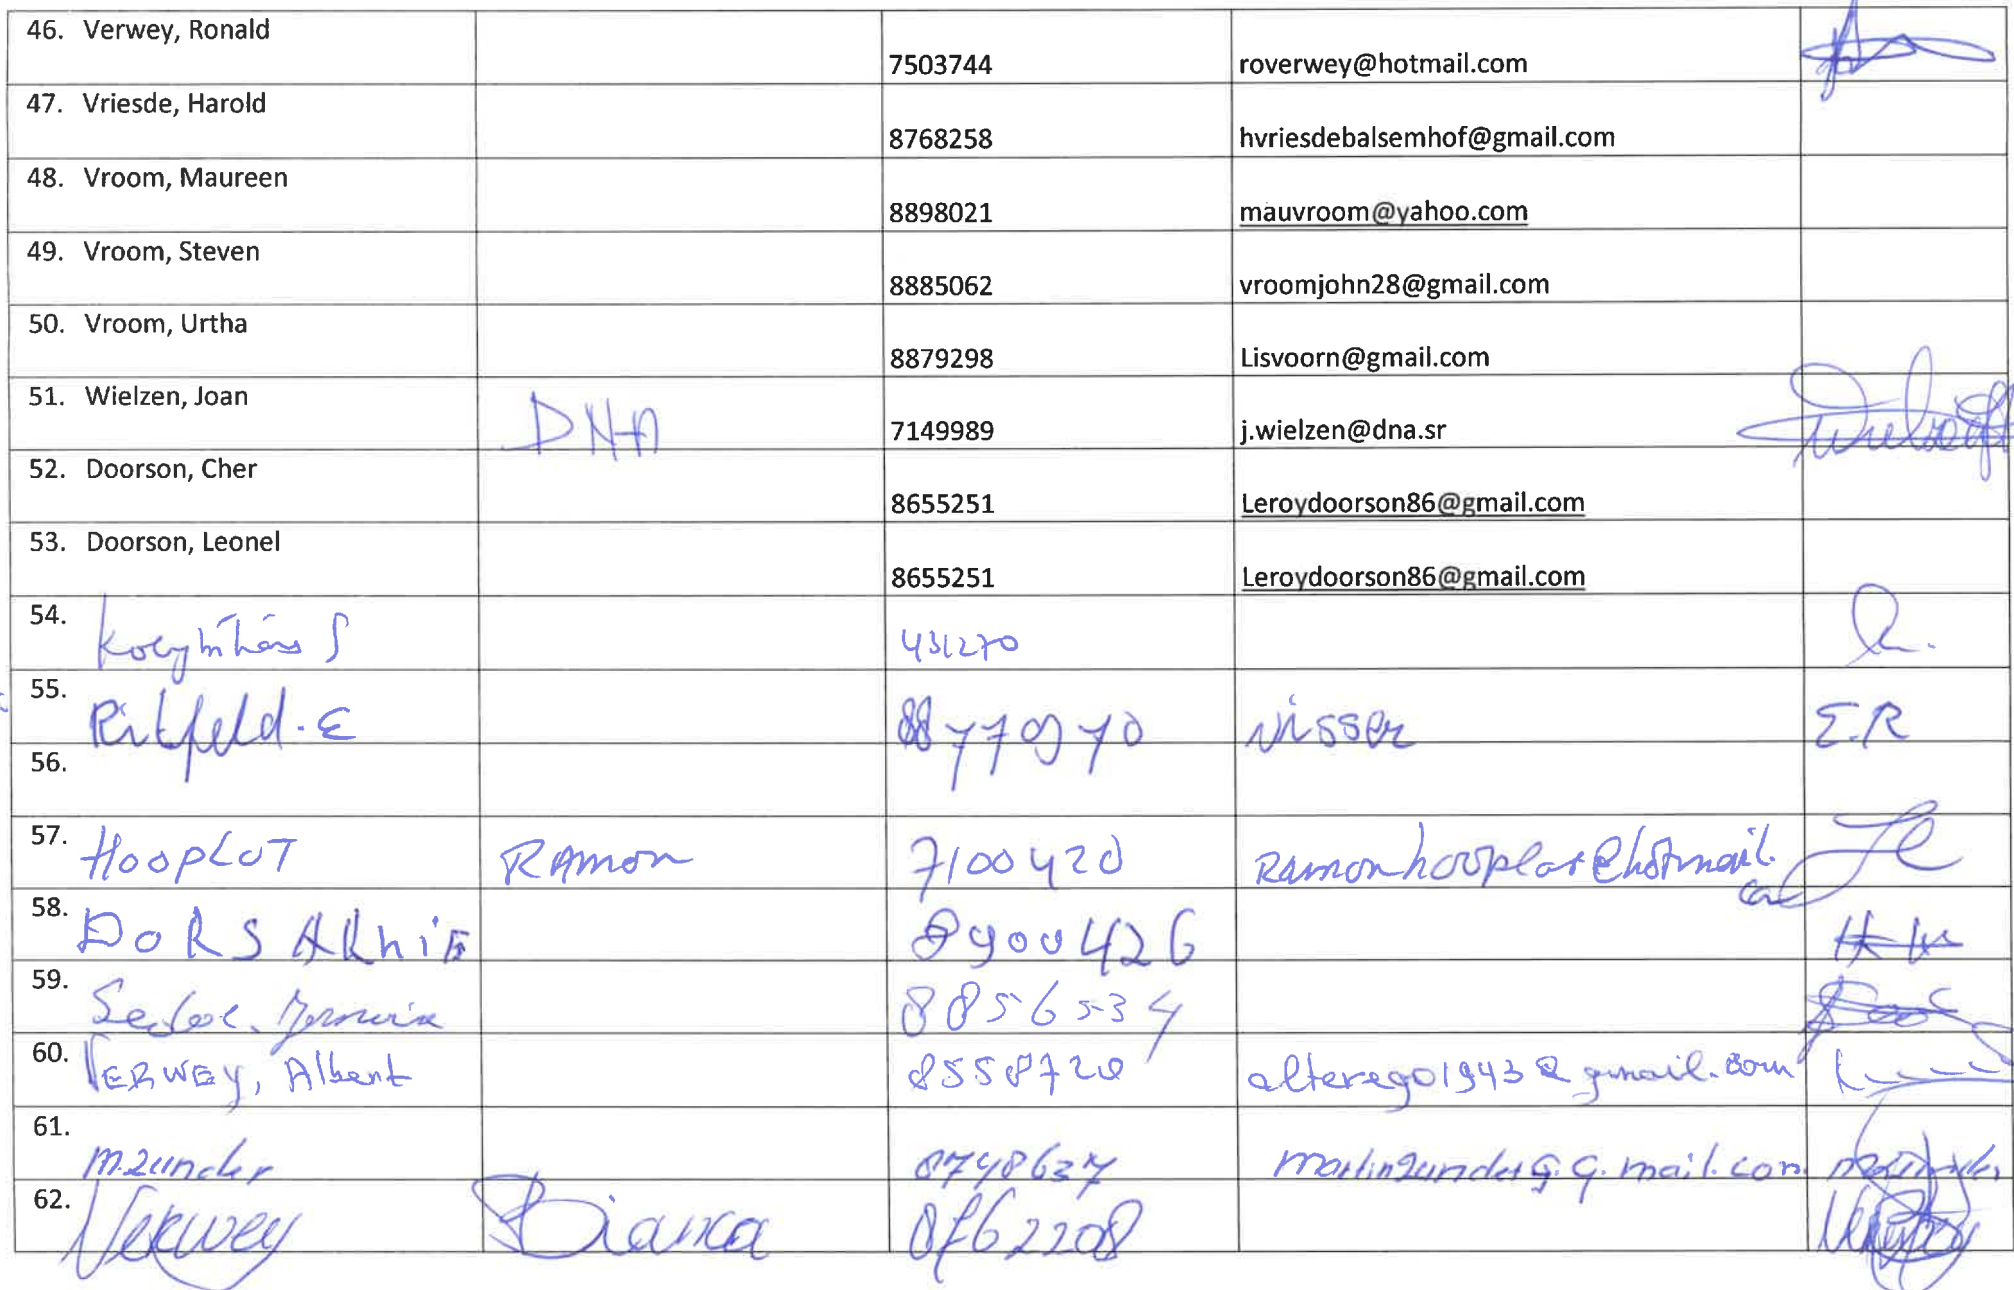 46. Verwey, Ronald 7503744 roverwey@hotmail.com
47. Vriesde, Harold 8768258 hvriesdebalsemhof@gmail.com
48. Vroom, Maureen 8898021 mauvroom@yahoo.com
49. Vroom, Steven 8885062 vroomjohn28@gmail.com
50. Vroom, Urtha 8879298 Lisvoorn@gmail.com
51. Wielzen, Joan DNA 7149989 j.wielzen@dna.sr
52. Doorson, Cher 8655251 Leroydoorson86@gmail.com
53. Doorson, Leonel 8655251 Leroydoorson86@gmail.com
54. 431270
55. Ritfeld.E 88770970 Visser E.R
56.
57. HOOPLOT RAMON 7100420 Ramonhooplot@hotmail.
58. DORS ARhiE 8900426
59. 8856534
60. VERWEY, Albert 8558720 alterego1943@gmail.com
61. M.Zunder 8748637
62. Verwey Bianca 8762208